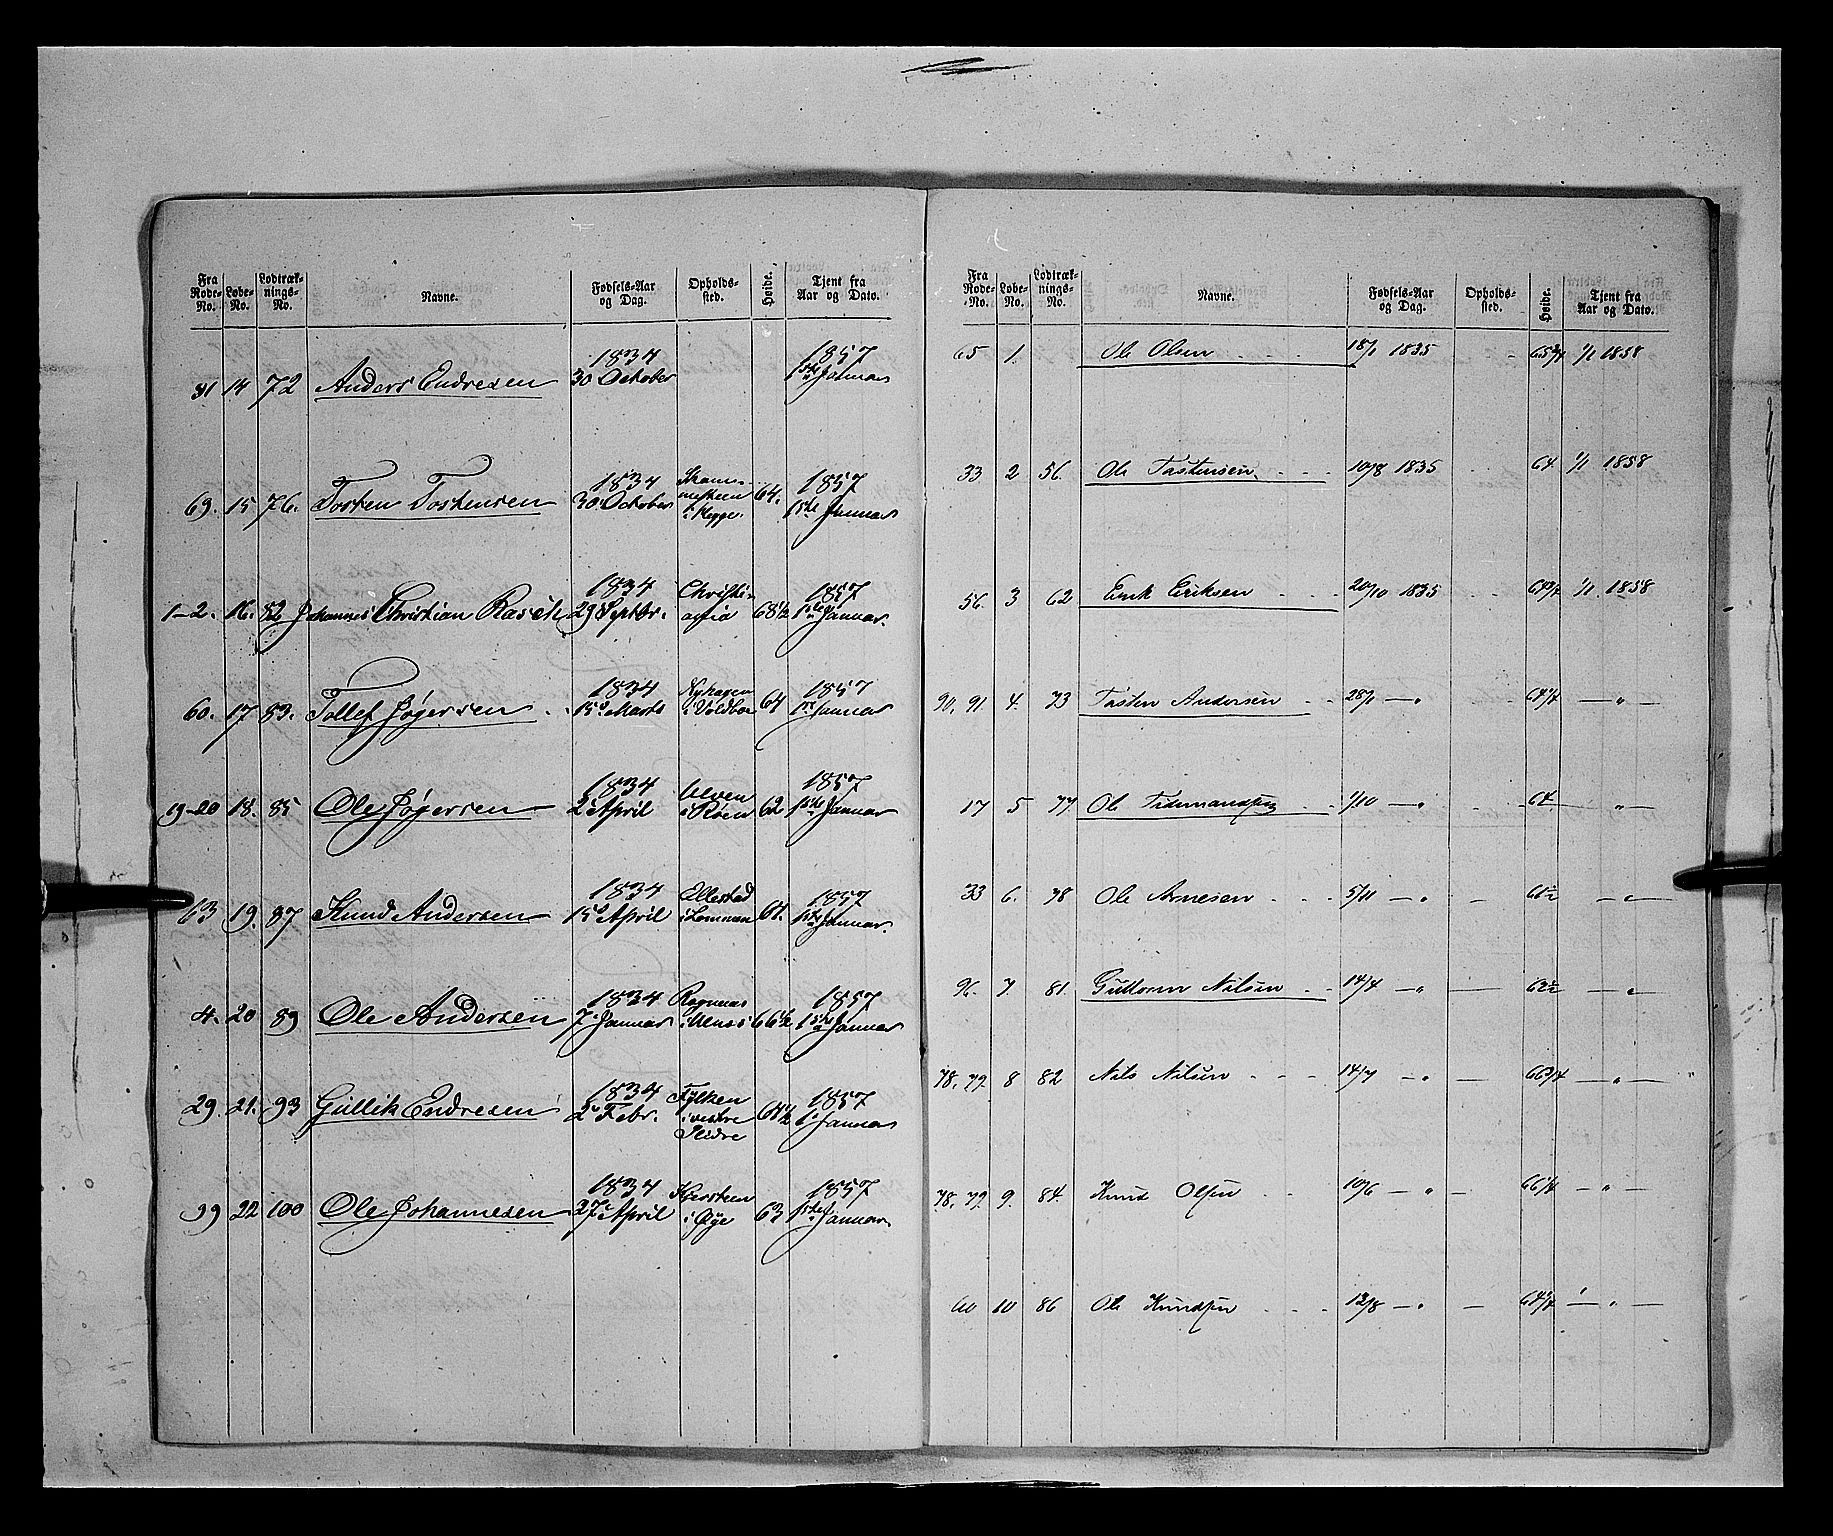 Fra Rode-No. Løbe-No. Lodtræk-nings-No. Navne. Fødsels-Aar og Dag. Opholds-sted. Høide. Tjent fra Aar og Dato.
31 14 72 Anders Endresen 1834 30 October 1857 1ste Januar
69. 15 76. Tosten Tostensen 1834 30 October i Hegge. 64. 1857 1ste Januar
1-2. 16. 82 Johannes Christian Rasch 1834 29 Septbr. Christiania 68½ 1857 1ste Januar.
60. 17 83. Tollef Jøgersen 1834 15de Marts Nyhagen i Voldbo 64 1857 1ste Januar
19-20 18. 85 Ole Jøgersen 1834 2de April Ulven i Røen 62 1857 1ste Januar
63 19. 87 Knud Andersen 1834 15de April Ellestad i Lommen 61. 1857 1ste Januar.
4. 20 89 Ole Andersen 1834 7de Januar Rognaas i Ulnæs 66½ 1857 1ste Januar
29. 21. 93 Gullik Endresen 1834 2de Febr. Fylken i vestre Slidre 64½ 1857 1ste Januar
99 22 100 Ole Johannesen 1834 27de April i Øye 63 1857 1ste Januar.
Fra Rode-No. Løbe-No. Lodtræk-nings-No. Navne. Fødsels-Aar og Dag. Opholds-sted. Høide. Tjent fra Aar og Dato.
65 1. Ole Olsen 18/1 1835 65¾ 1/1 1858
33 2 56. Ole Tostensen 10/8 1835 64 1/1 1858
56. 3 62 Erik Eriksen 20/10 1835 64¾ 1/1 1858
90, 91 4. 73 Tosten Andersen 28/1 — " 64¼ — " —
17 5 77 Ole Tidemandsen 1/10 — " 64. — " —
33 6. 78 Ole Arnesen 5/11 — " 61½ — " —
96. 7. 81. Guttorm Nilsen 14/4 — " 62½ — " —
78, 79. 8 82 Nils Nilsen 14/7 — " — " —
78, 79. 9. 84. Knud Olsen 10/6 — " 66¼ — " —
60 10 86 Ole Knudsen 12/8 — " 64¼ — " —